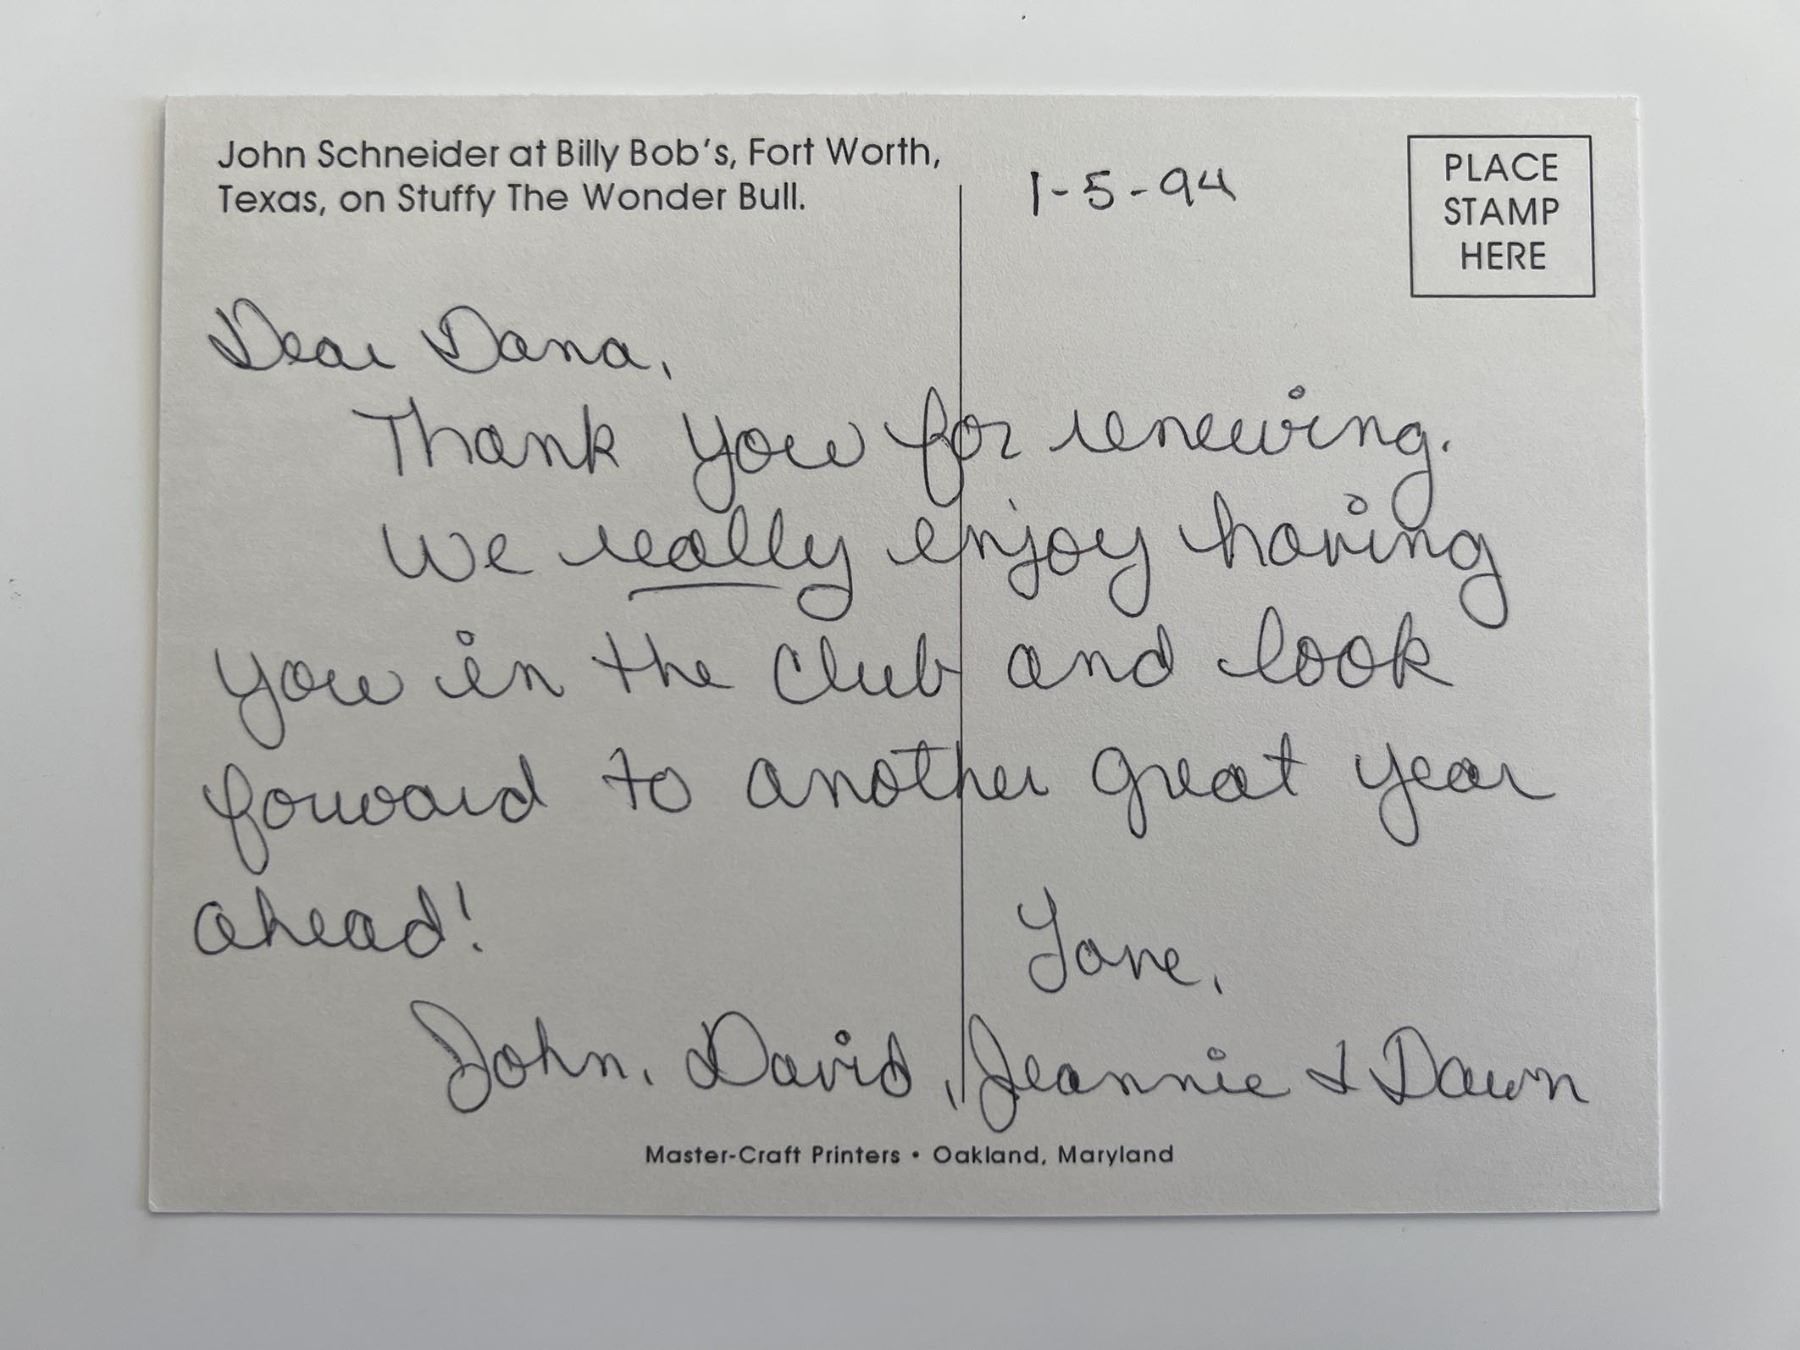 John Schneider at Billy Bob's, Fort Worth,
Texas, on Stuffy The Wonder Bull.
1-5-94
PLACE
STAMP
HERE
Dear Dana,
Thank you for renewing.
We really enjoy having
you in the club and look
forward to another great year
ahead!
Love,
John, David, Jeannie & Dawn
Master-Craft Printers • Oakland, Maryland